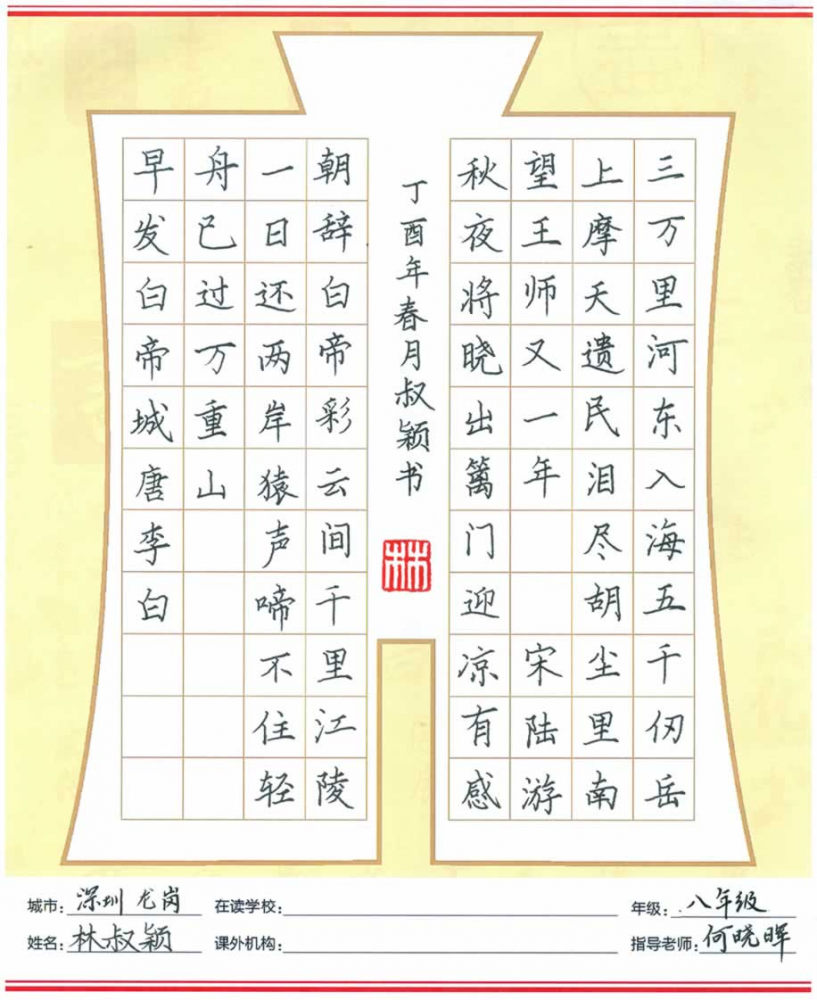 三万里河东入海五千仞岳
上摩天遗民泪尽胡尘里南
望王师又一年 宋陆游
秋夜将晓出篱门迎凉有感
丁酉年春月叔颖书
林
朝辞白帝彩云间千里江陵
一日还两岸猿声啼不住轻
舟已过万重山
早发白帝城唐李白
城市：深圳龙岗 在读学校： 年级：八年级
姓名：林叔颖 课外机构： 指导老师：何晓晖